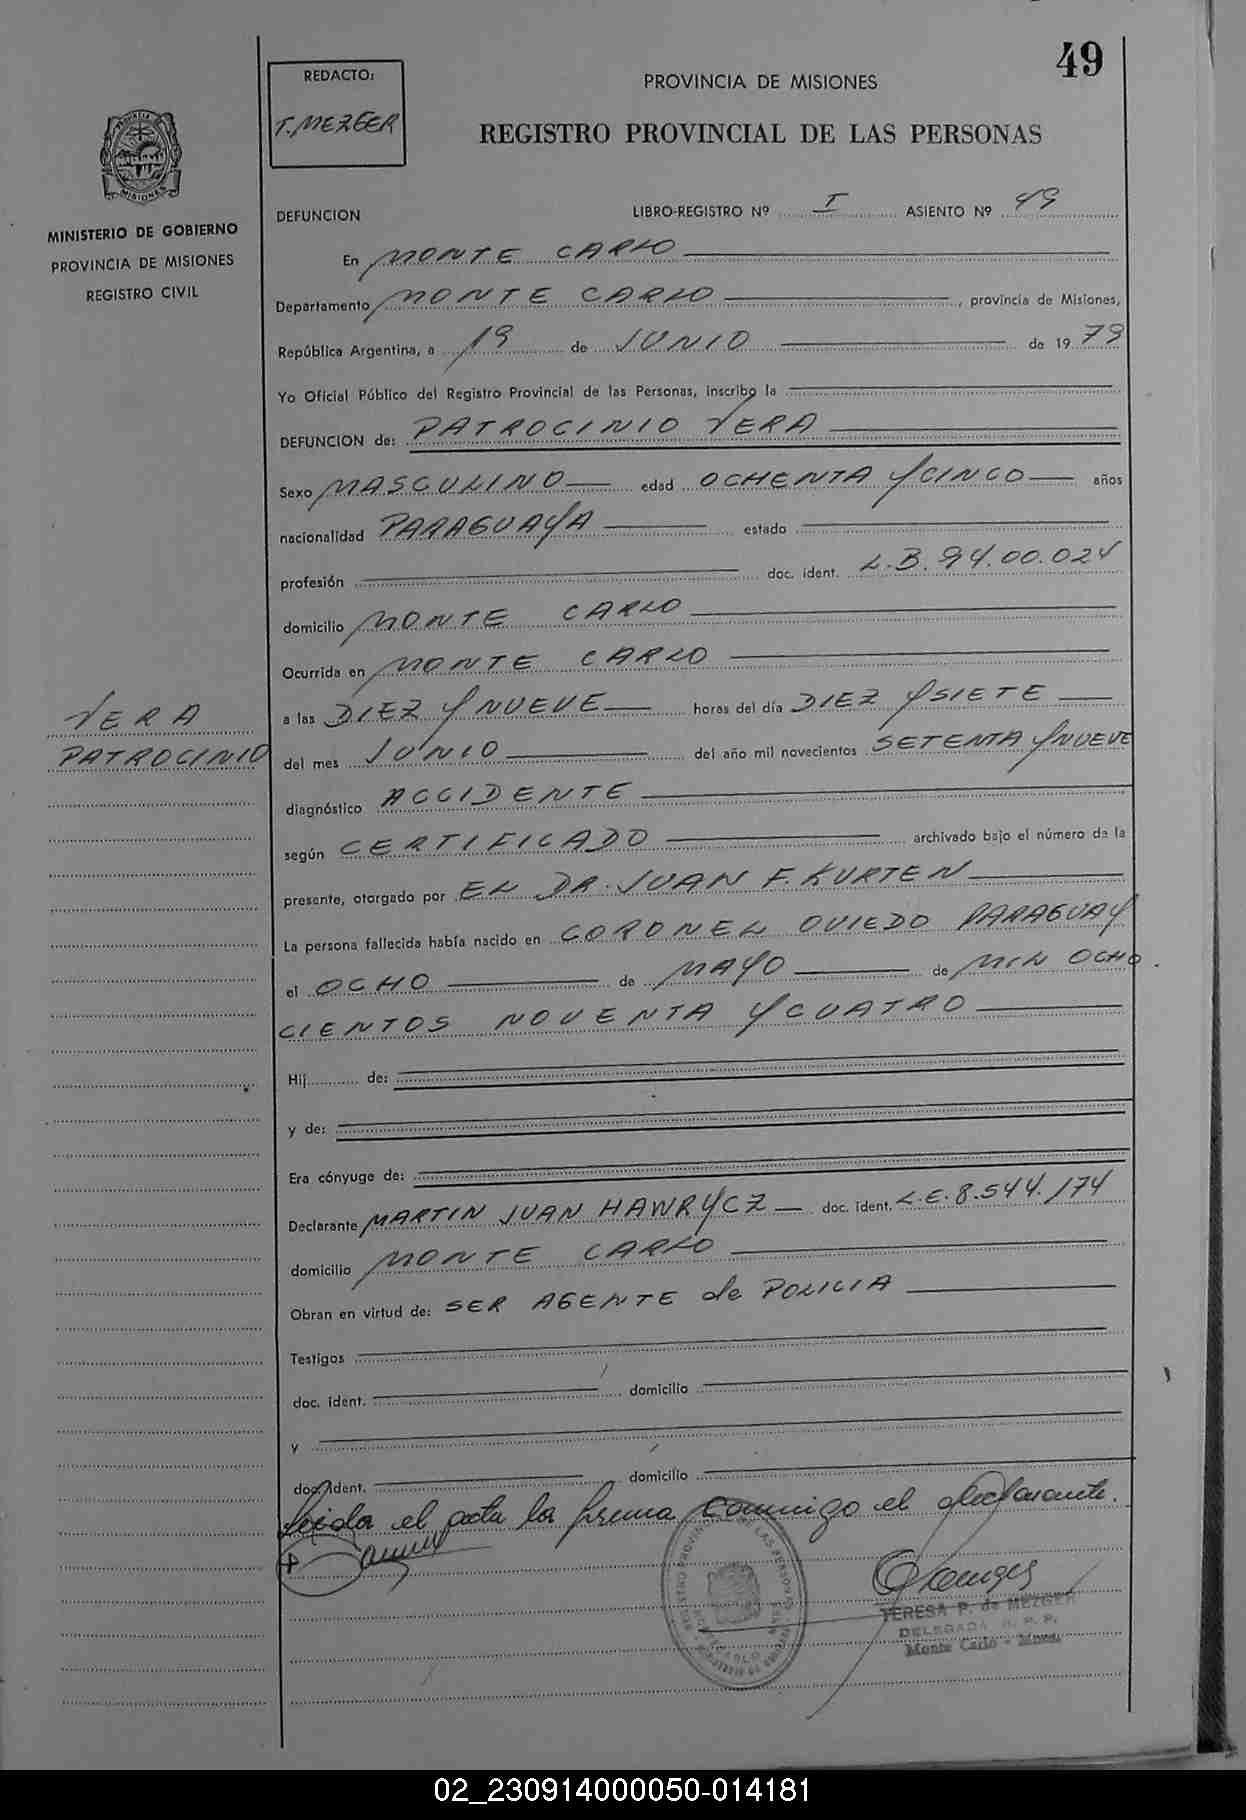 49
REDACTO:
T. MEZGER
PROVINCIA DE MISIONES
REGISTRO PROVINCIAL DE LAS PERSONAS
MISIONES
MINISTERIO DE GOBIERNO
PROVINCIA DE MISIONES
REGISTRO CIVIL
DEFUNCION LIBRO-REGISTRO Nº I ASIENTO Nº 49
En MONTE CARLO
Departamento MONTE CARLO, provincia de Misiones,
República Argentina, a 19 de JUNIO de 1979
Yo Oficial Público del Registro Provincial de las Personas, inscribo la
DEFUNCION de: PATROCINIO VERA
Sexo MASCULINO edad OCHENTA Y CINCO años
nacionalidad PARAGUAYA estado
profesión doc. ident. L.B. 94.00.024
domicilio MONTE CARLO
Ocurrida en MONTE CARLO
VERA
PATROCINIO
a las DIEZ Y NUEVE horas del día DIEZ Y SIETE
del mes JUNIO del año mil novecientos SETENTA Y NUEVE
diagnóstico ACCIDENTE
según CERTIFICADO archivado bajo el número de la
presente, otorgado por EL DR. JUAN F. KURTEN
La persona fallecida había nacido en CORONEL OVIEDO PARAGUAY
el OCHO de MAYO de MIL OCHO
CIENTOS NOVENTA Y CUATRO
Hij de:
y de:
Era cónyuge de:
Declarante MARTIN JUAN HAWRYCZ doc. ident. L.E. 8.544.174
domicilio MONTE CARLO
Obran en virtud de: SER AGENTE de POLICIA
Testigos
doc. ident. domicilio
y
doc. ident. domicilio
Leida el acta la firma conmigo el declarante.
TERESA P. de MEZGER
DELEGADA R. P. P.
Monte Carlo - Mnes.
02_230914000050-014181